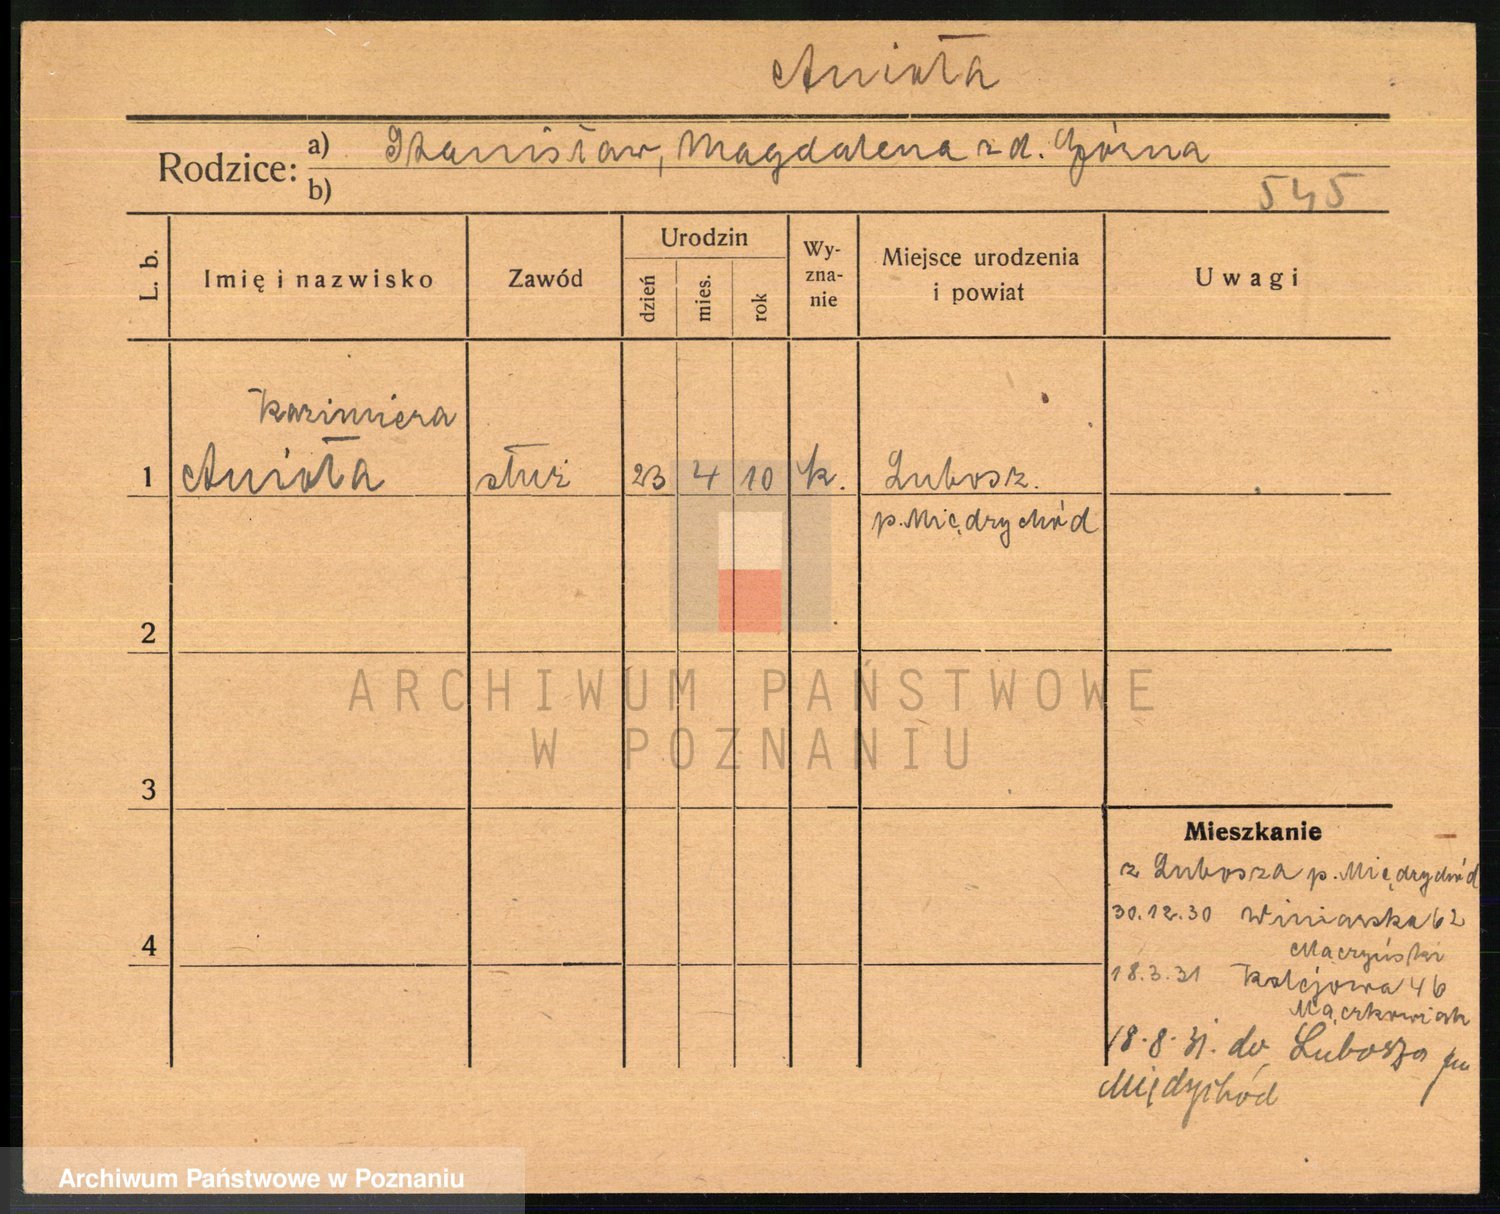 Anioła
Rodzice: a) Stanisław, Magdalena z d. Górna
b)
545
L. b. Imię i nazwisko Zawód Urodzin dzień mies. rok Wy-zna-nie Miejsce urodzenia i powiat Uwagi
Kazimiera
1 Anioła służ 23 4 10 k. Lubosz.
p. Międzychód
2
ARCHIWUM PAŃSTWOWE
W POZNANIU
3
Mieszkanie
z Lubosza p. Międzychód
30.12.30 Winiarska 62
Mączyński
4
18.3.31 Kolejowa 46
Mączkowiak
18.8.31. do Lubosza pow
Międzychód
Archiwum Państwowe w Poznaniu